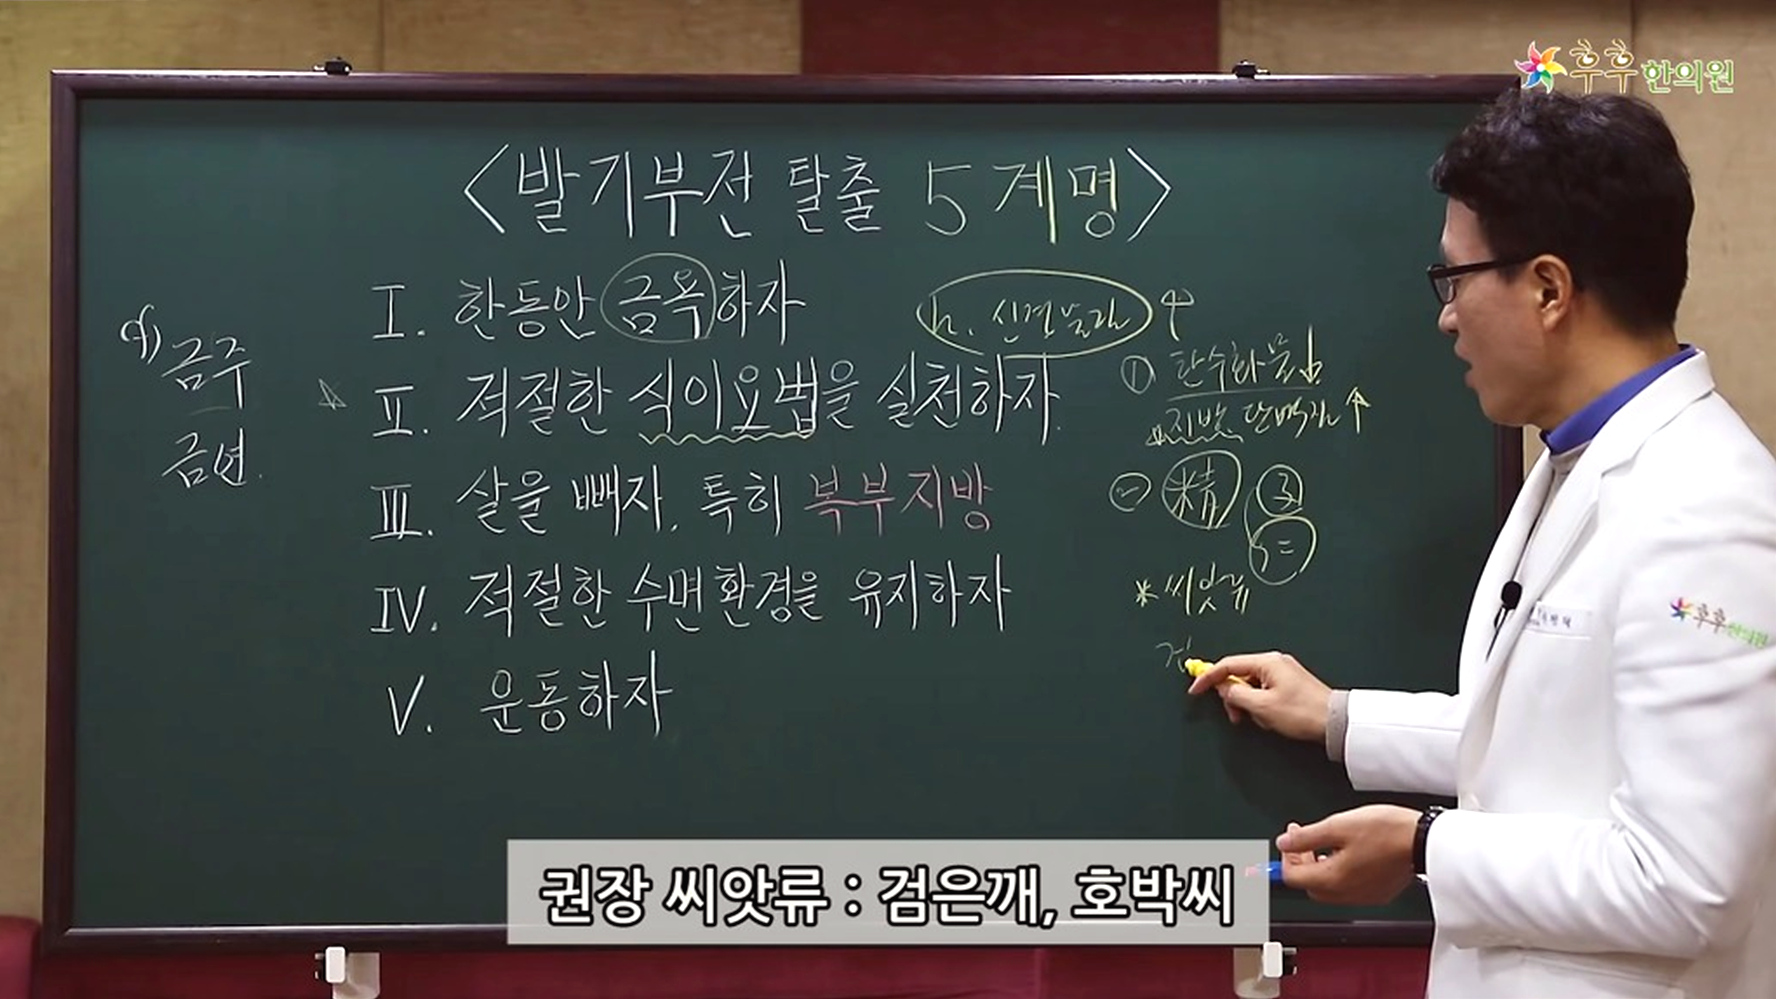 후후한의원
<발기부전 탈출 5계명>
I. 한동안 금욕하자
II. 적절한 식이요법을 실천하자.
III. 살을 빼자, 특히 복부지방
IV. 적절한 수면환경을 유지하자
V. 운동하자
cf) 금주
금연.
h.
① 탄수화물↓
지방, 단백질↑
② 精 ③
* 씨앗류
후후한의원
권장 씨앗류 : 검은깨, 호박씨